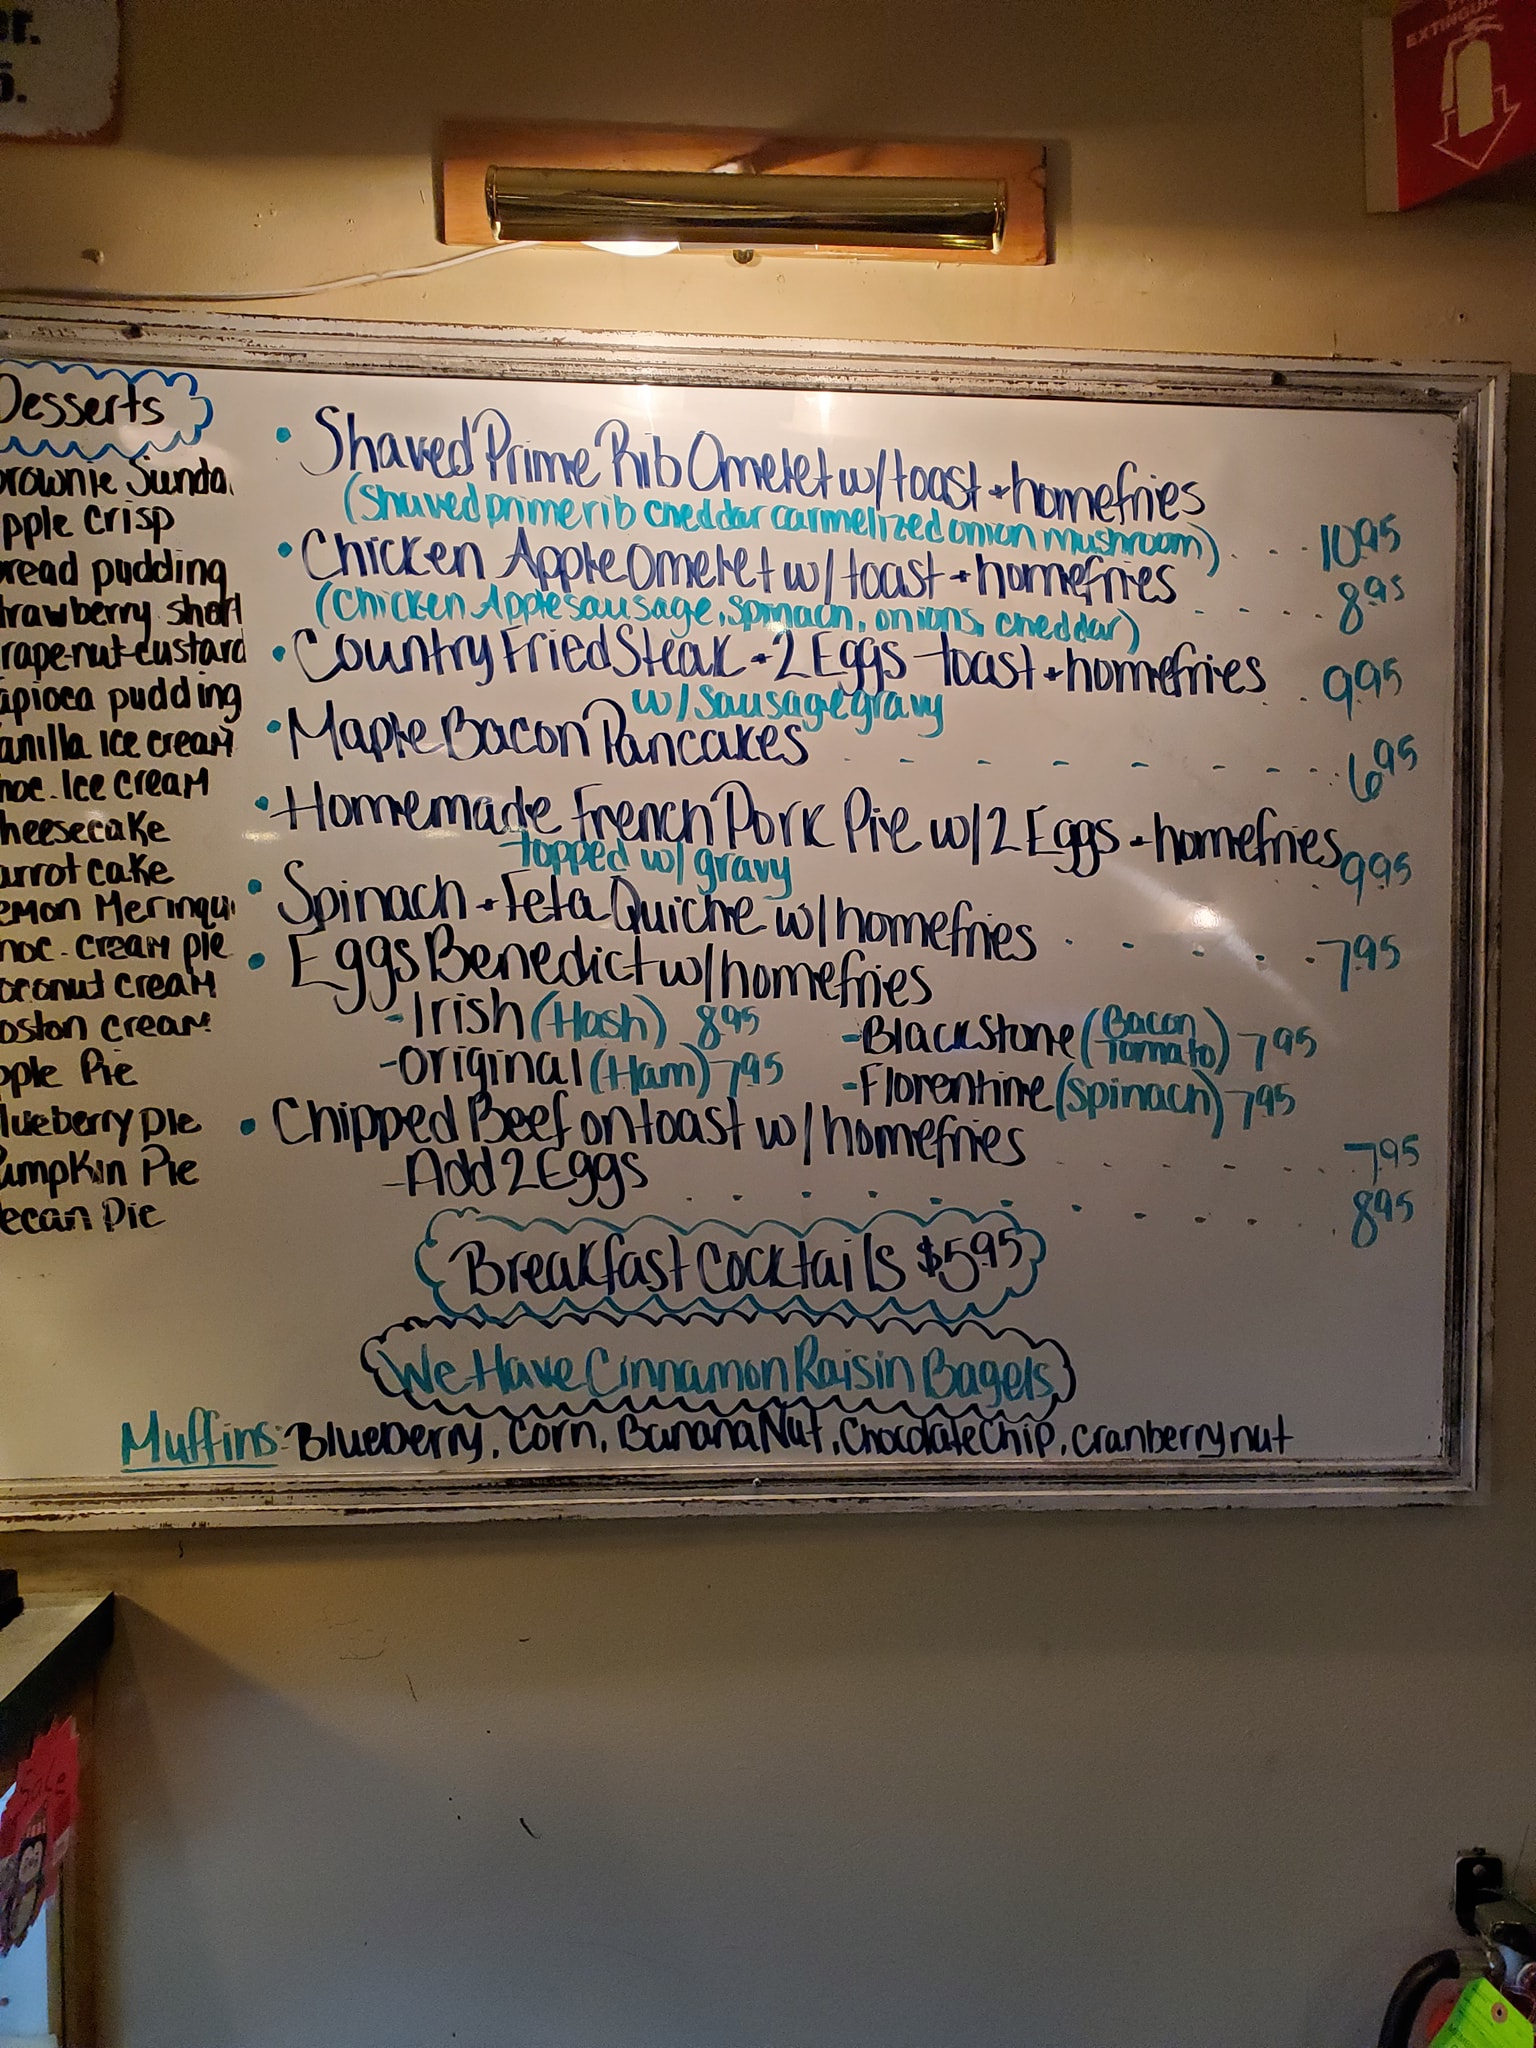 r.
5.
EXTINGUIS
Desserts
rownie Sunda
pple crisp
read pudding
trawberry short
rape-nut-custard
apioca pudding
anilla Ice cream
hoc. Ice cream
heesecake
arrot cake
emon Meringu
hoc. cream pie
oconut cream
oston cream
pple Pie
lueberry pie
umpkin Pie
ecan Pie
• Shaved Prime Rib Omelet w/ toast + homefries
(Shaved prime rib cheddar carmelized onion mushroom) .... 10.95
• Chicken Apple Omelet w/ toast + homefries
(Chicken Apple sausage, spinach, onions, cheddar) .... 8.95
• Country Fried Steak + 2 Eggs toast + homefries .. 9.95
w/ sausage gravy
• Maple Bacon Pancakes - - - - - - - - 6.95
• Homemade French Pork Pie w/ 2 Eggs + homefries 9.95
topped w/ gravy
• Spinach + Feta Quiche w/ homefries ..... 7.95
• Eggs Benedict w/ homefries
- Irish (Hash) 8.95
- Blackstone (Bacon Tomato) 7.95
- Original (Ham) 7.95
- Florentine (Spinach) 7.95
• Chipped Beef on toast w/ homefries ...... 7.95
- Add 2 Eggs .......... 8.95
Breakfast Cocktails $5.95
We Have Cinnamon Raisin Bagels
Muffins: Blueberry, Corn, Banana Nut, Chocolate Chip, Cranberry nut
Sale